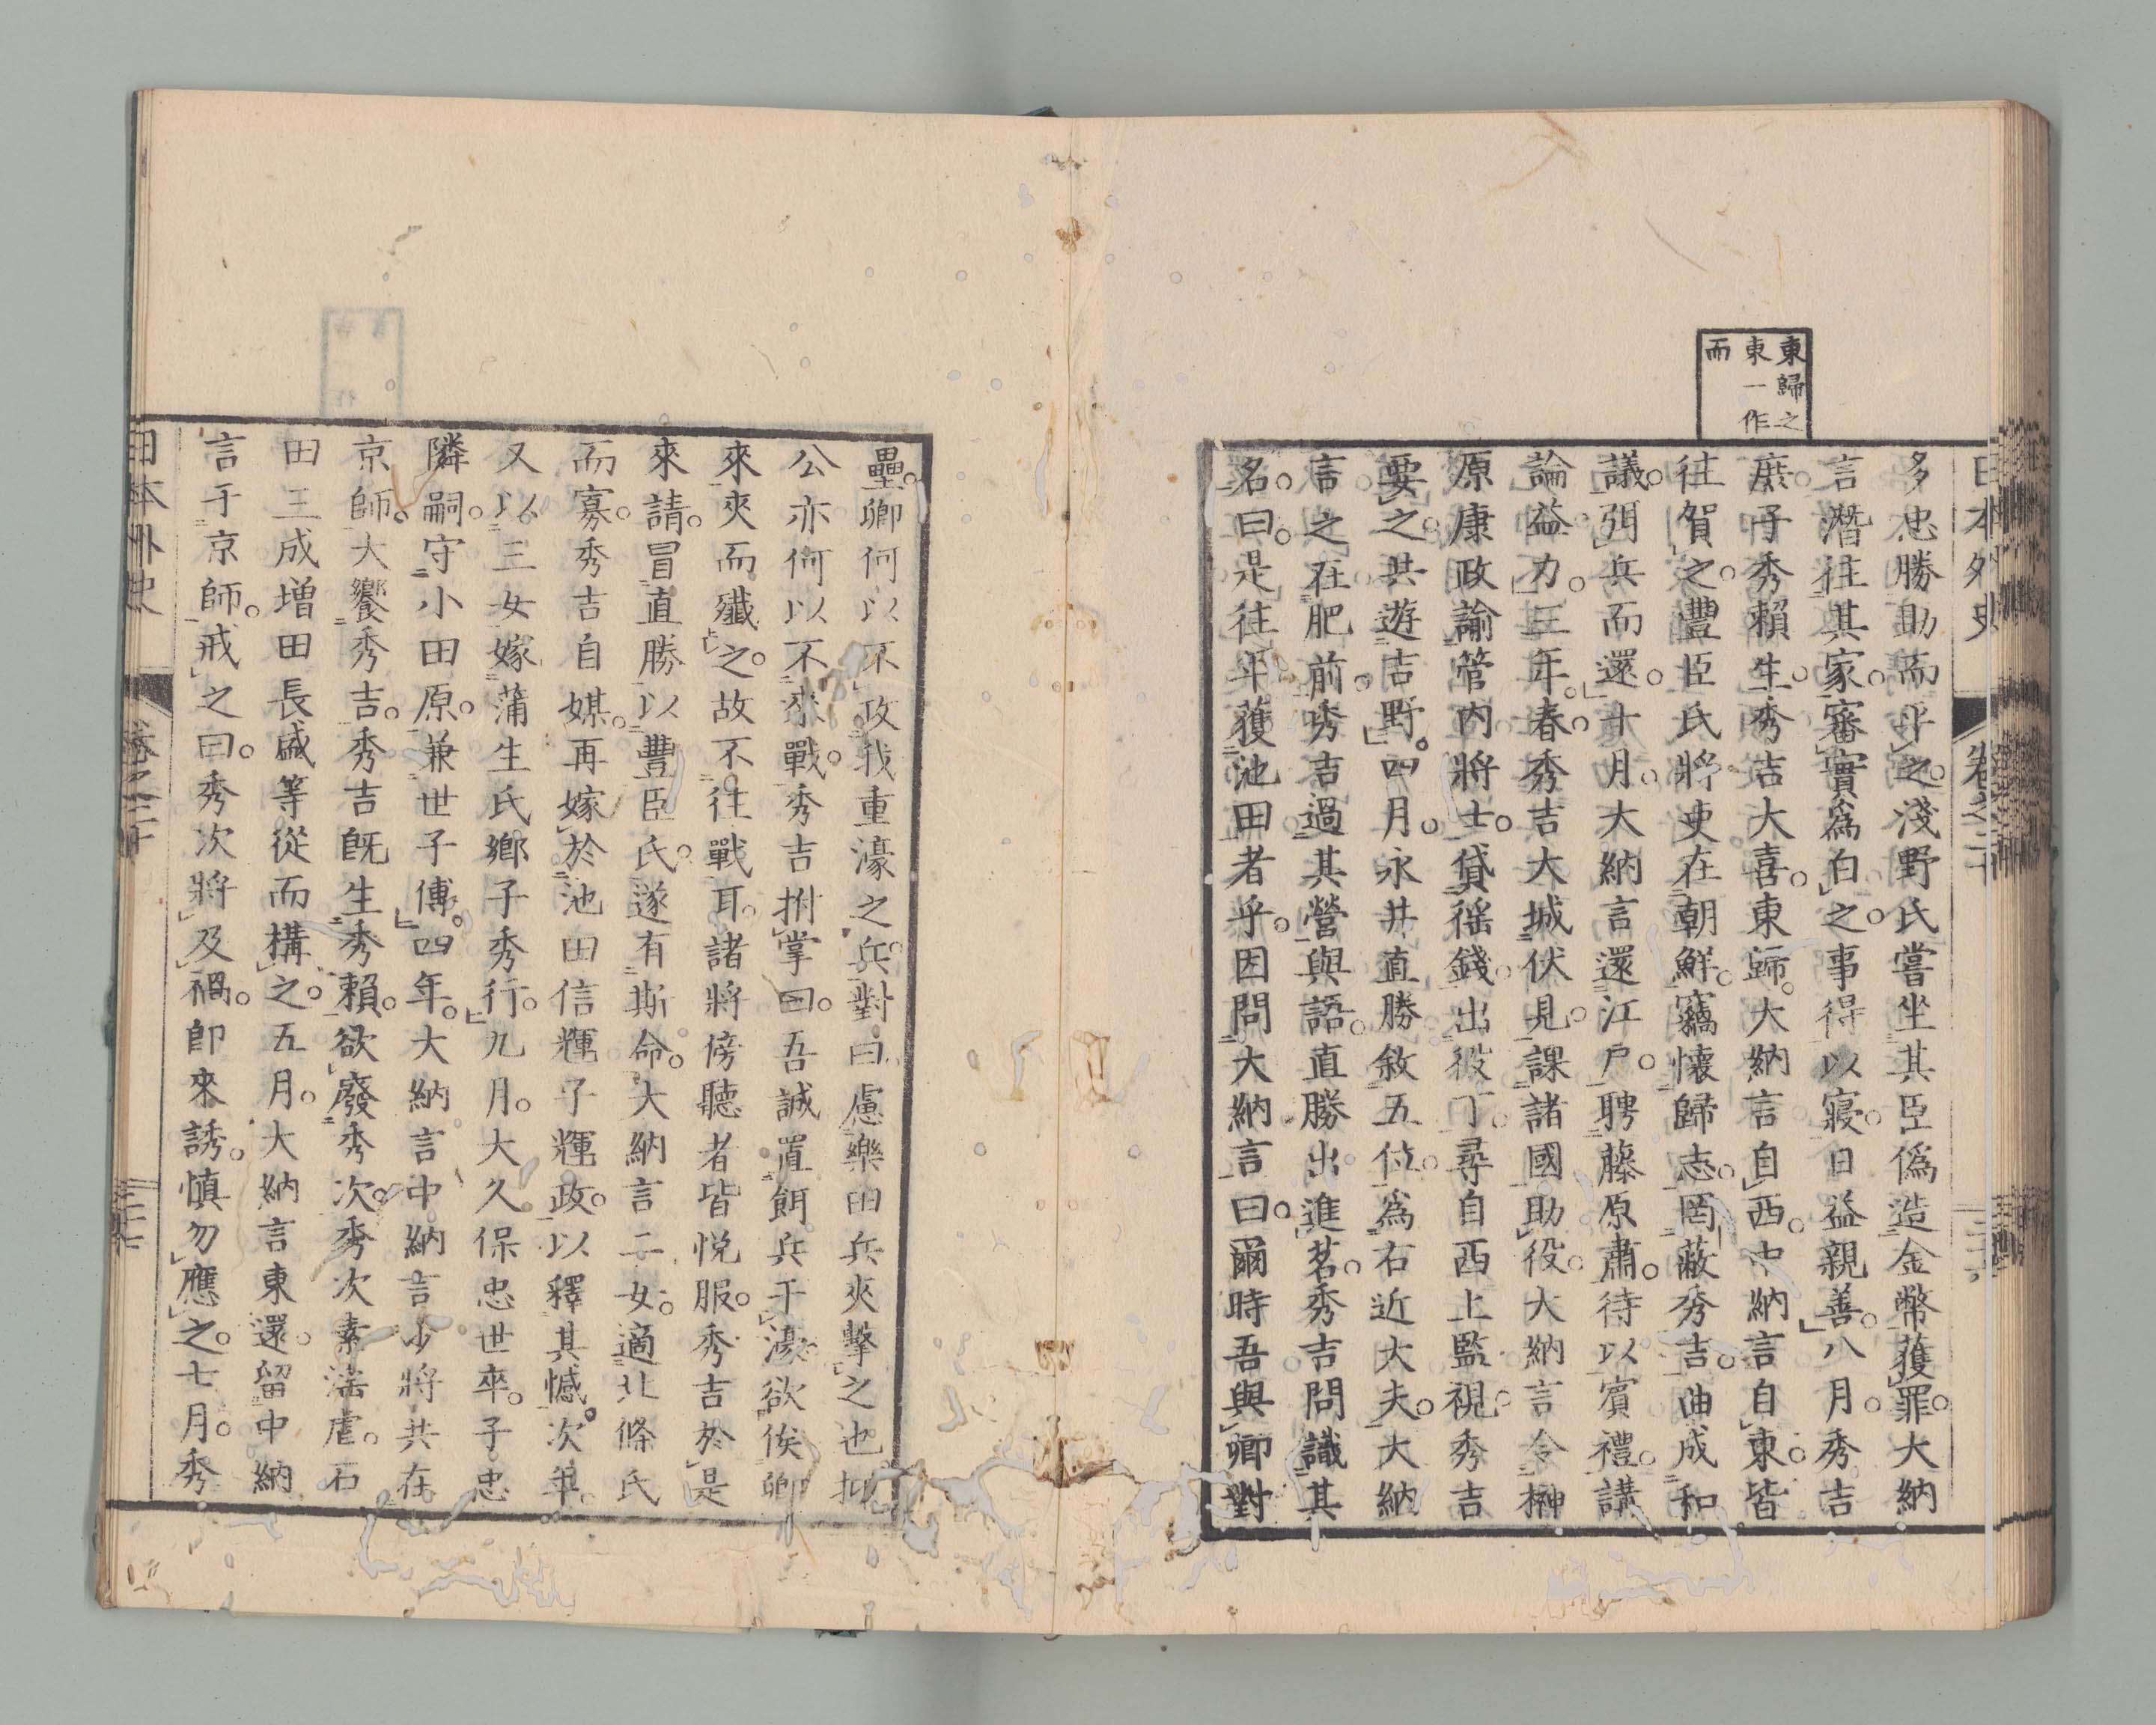 日本外史
卷之二十
東歸之
東一作
而
多忠勝助而平之。淺野氏嘗坐其臣僞造金幣獲罪。大納
言潛往其家。審實爲白之。事得以寢。日益親善。八月。秀吉
庶子秀賴生。秀吉大喜。東歸。大納言自西。中納言自東。皆
往賀之。豐臣氏將吏在朝鮮。竊懷歸志。罔蔽秀吉。曲成和
議。弭兵而還。十月。大納言還江戸。聘藤原肅。待以賓禮。講
論益力。三年。春。秀吉大城伏見。課諸國助役。大納言令榊
原康政諭管内將士。貸徭錢。出役丁。尋自西上監視。秀吉
要之。共遊吉野。四月。永井直勝敘五位。爲右近大夫。大納
言之在肥前。秀吉過其營與語。直勝出進茗。秀吉問識其
名。曰。是往年獲池田者乎。因問大納言曰。爾時吾與卿對
壘。卿何以不攻我重濠之兵。對曰。慮樂田兵夾擊之也。抑
公亦何以不來戰。秀吉拊掌曰。吾誠置餌兵于濠。欲俟卿
來夾而殲之。故不往戰耳。諸將傍聽者皆悅服。秀吉於是
來請。冒直勝以豐臣氏。遂有斯命。大納言二女。適北條氏
而寡。秀吉自媒。再嫁於池田信輝子輝政。以釋其憾。次年。
又以三女嫁蒲生氏鄉子秀行。九月。大久保忠世卒。子忠
隣嗣。守小田原。兼世子傅。四年。大納言中納言少將共在
京師。大饗秀吉。秀吉既生秀賴。欲廢秀次。秀次素淫虐。石
田三成增田長盛等從而構之。五月。大納言東還。留中納
言于京師。戒之曰。秀次將及禍。卽來誘。愼勿應之。七月。秀
日本外史
卷之二十